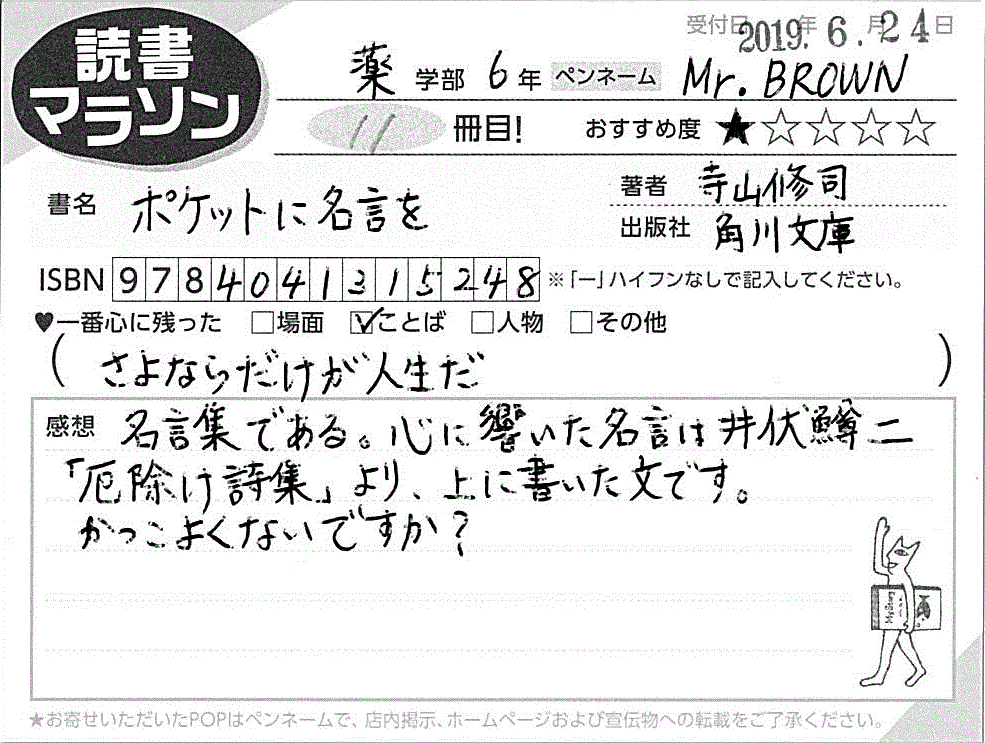 読書
マラソン
受付日 2019年 6月 24日
薬 学部 6 年 ペンネーム Mr. BROWN
11 冊目! おすすめ度 ★☆☆☆☆
書名 ポケットに名言を
著者 寺山修司
出版社 角川文庫
ISBN 9784041315248 ※「ー」ハイフンなしで記入してください。
♥一番心に残った □場面 ☑ことば □人物 □その他
(さよならだけが人生だ)
感想 名言集である。心に響いた名言は井伏鱒二
「厄除け詩集」より、上に書いた文です。
かっこよくないですか?
★お寄せいただいたPOPはペンネームで、店内掲示、ホームページおよび宣伝物への転載をご了承ください。